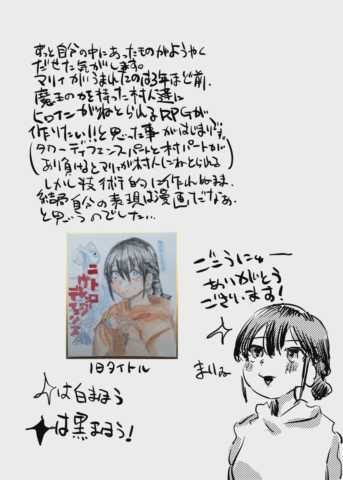 ずっと自分の中にあったものがようやく
だせた気がします。
マリィがうまれたのは3年ほど前、
魔王の力を持った村人達に
ヒロインがねとられるRPGが
作りたい!!と思った事がはじまりです
(タワーディフェンスパートと村パートが
あり負けるとマリィが村人にねとられる)
しかし技術的に作れぬまま、
結局自分の表現は漫画だなあ、
と思うのでした…
旧タイトル
は白まほう
は黒まほう!
ごこうにゅー
ありがとう
ございます!
まりぃ